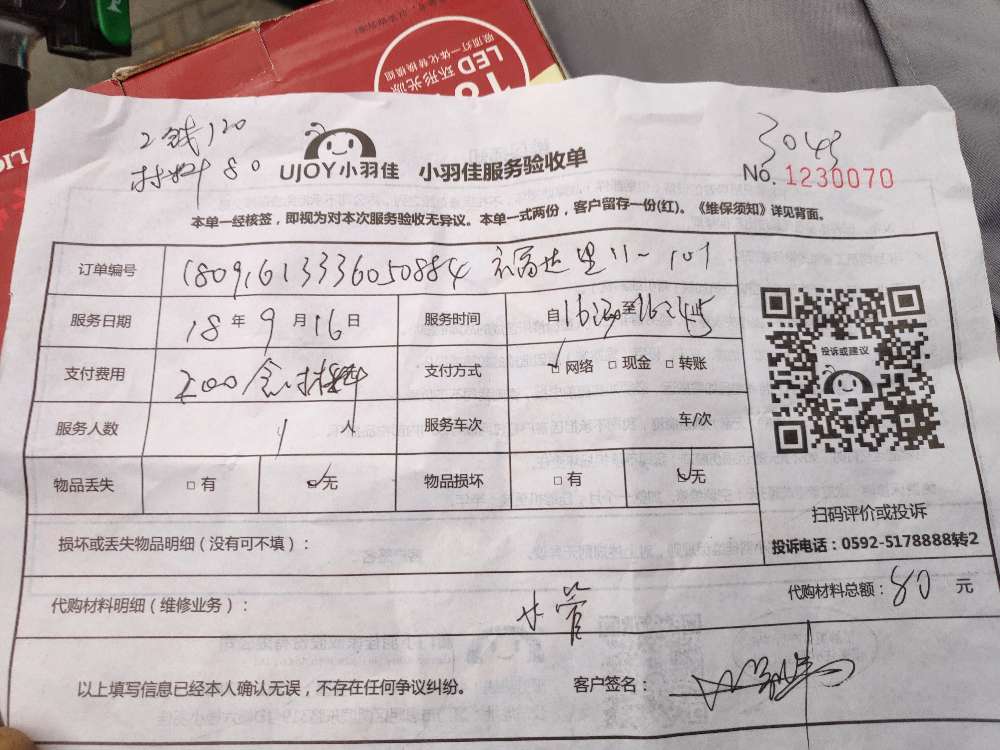 LED 环形光源
吸顶灯一体化替换模组
工钱120
材料80
UJOY小羽佳 小羽佳服务验收单
3043
No. 1230070
本单一经核签，即视为对本次服务验收无异议。本单一式两份，客户留存一份(红)。《维保须知》详见背面。
订单编号 18091613336050884
服务日期 18年9月16日 服务时间 自 至
支付费用 200含材料 支付方式 网络 □现金 □转账
服务人数 1人 服务车次 车/次
物品丢失 □有 无 物品损坏 □有 无
投诉或建议
扫码评价或投诉
投诉电话：0592-5178888转2
损坏或丢失物品明细（没有可不填）：
代购材料明细（维修业务）： 水管 代购材料总额：80元
以上填写信息已经本人确认无误，不存在任何争议纠纷。 客户签名：